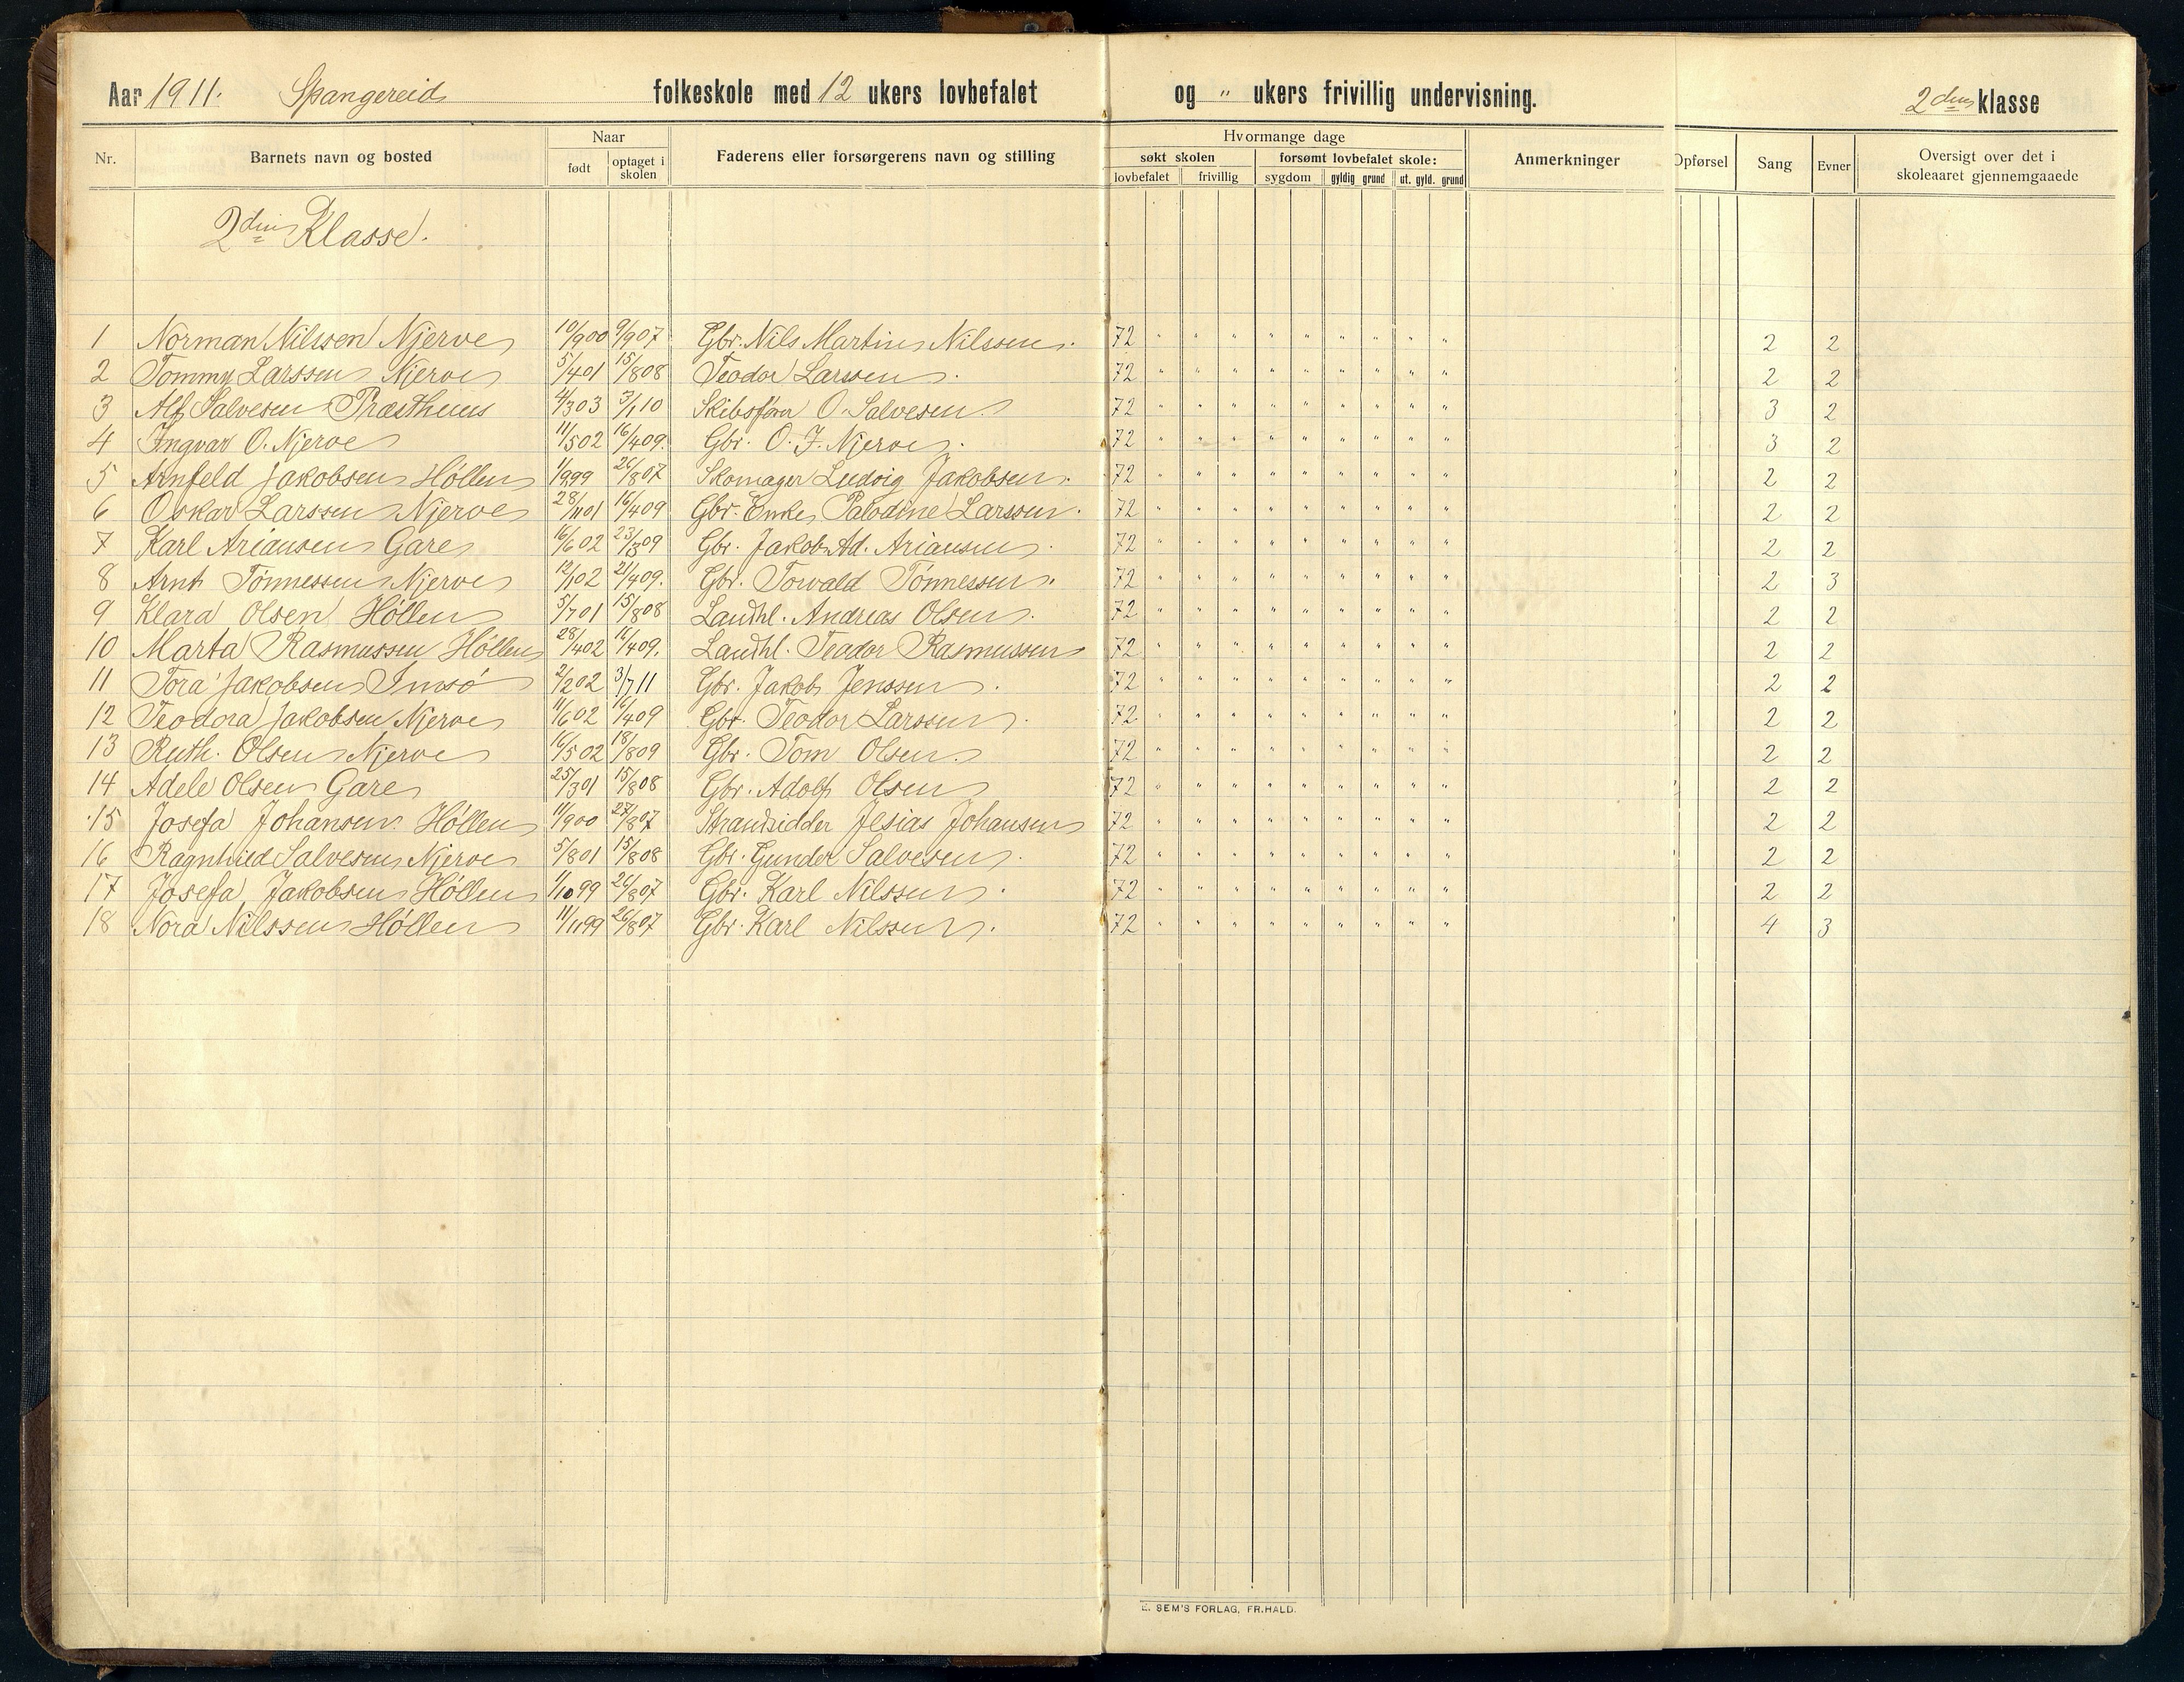 Aar 1911. Spangereid folkeskole med 12 ukers lovbefalet og " ukers frivillig undervisning. 2den klasse
Nr. Barnets navn og bosted Naar født optaget i skolen Faderens eller forsørgerens navn og stilling Hvormange dage søkt skolen lovbefalet frivillig forsømt lovbefalet skole: sygdom gyldig grund ut. gyld. grund Anmerkninger Opførsel Sang Evner Oversigt over det i skoleaaret gjennemgaaede
2den Klasse.
1 Norman Nilssen Njerve 10/9 00 9/9 07 Gbr. Nils Martin Nilssen. 72 " " " " " " " " " 2 2
2 Tommy Larssen Njerve 5/4 01 15/8 08 Teodor Larssen. 72 " " " " " " " " " 2 2
3 Alf Salvesen Præsthuus 4/3 03 3/1 10 Skibsfører O. Salvesen. 72 " " " " " " " " " 3 2
4 Ingvar O. Njerve 11/5 02 16/4 09. Gbr. O. J. Njerve. 72 " " " " " " " " " 3 2
5 Arnfeld Jakobsen Höllen 1/9 99 26/8 07 Skomager Ludvig Jakobsen. 72 " " " " " " " " " 2 2
6 Oskar Larssen Njerve 28/11 01 16/4 09 Gbr. Enke Palodine Larssen. 72 " " " " " " " " " 2 2
7 Karl Ariansen Gare 16/6 02 Gbr. Jakob Ad. Ariansen. 72 " " " " " " " " " 2 2
8 Arnt Tönnessen Njerve 12/1 02 21/4 09. Gbr. Torvald Tönnessen. 72 " " " " " " " " " 2 3
9 Klara Olsen Höllen 5/7 01 15/8 08 Landhl. Andreas Olsen. 72 " " " " " " " " " 2 2
10 Marta Rasmussen Höllen 28/4 02 16/4 09. Landhl. Teodor Rasmussen 72 " " " " " " " " " 2 2
11 Tora Jakobsen Imsö 2/2 02 3/7 11 Gbr. Jakob Jenssen. 72 " " " " " " " " " 2 2
12 Teodora Jakobsen Njerve 11/6 02 16/4 09 Gbr. Teodor Larssen. 72 " " " " " " " " " 2 2
13 Ruth. Olsen Njerve 16/5 02 18/8 09 Gbr. Tom Olsen. 72 " " " " " " " " " 2 2
14 Adele Olsen Gare 25/3 01 15/8 08 Gbr. Adolf Olsen 72 " " " " " " " " " 2 2
15 Josefa Johansen Höllen 11/9 00 27/8 07 Strandsidder Jesias Johansen 72 " " " " " " " " " 2 2
16 Ragnhild Salvesen Njerve 5/8 01 15/8 08 Gbr. Gunder Salvesen. 72 " " " " " " " " " 2 2
17 Josefa Jakobsen Höllen 1/10 99 26/8 07 Gbr. Karl Nilssen. 72 " " " " " " " " " 2 2
18 Nora Nilssen Höllen 11/11 99 26/8 07 Gbr. Karl Nilssen. 72 " " " " " " " " " 4 3
E. SEM'S FORLAG, FR.HALD.